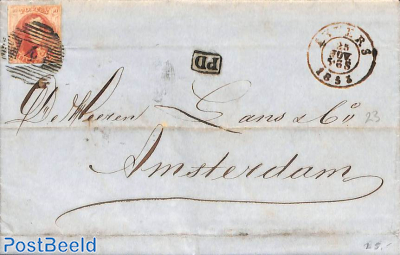 ANVERS
25
NOV
1853
PD
De Heeren Cans & Co
23
Amsterdam
PostBeeld